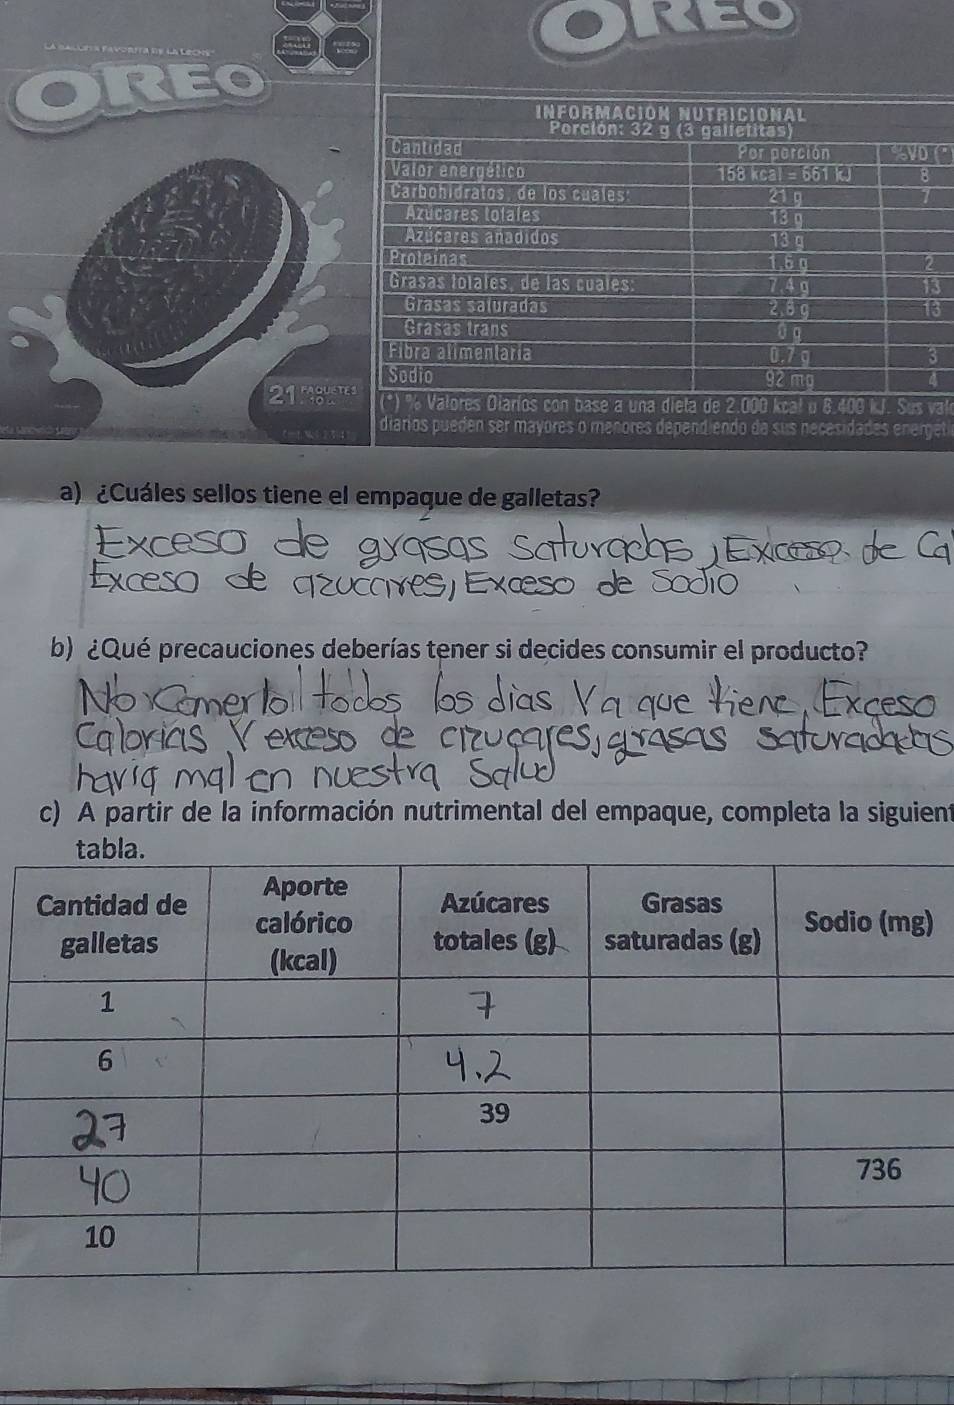 OREO
LA GALLETA FAVORITA DE LA LECHE
OREO
INFORMACIÓN NUTRICIONAL
Porción: 32 g (3 galletitas)
Cantidad Por porción %VD (*)
Valor energético 158 kcal = 661 kJ 8
Carbohidratos, de los cuales: 21 g 7
Azúcares totales 13 g
Azúcares añadidos 13 g
Proteínas 1,6 g 2
Grasas totales, de las cuales: 7,4 g 13
Grasas saturadas 2,8 g 13
Grasas trans 0 g
Fibra alimentaria 0,7 g 3
Sodio 92 mg 4
21 PAQUETES
(*) % Valores Diarios con base a una dieta de 2.000 kcal u 8.400 kJ. Sus valo
diarios pueden ser mayores o menores dependiendo de sus necesidades energéti
a) ¿Cuáles sellos tiene el empaque de galletas?
Exceso de grasas saturadas, Exceso de Ca
Exceso de azucares, Exceso de Sodio
b) ¿Qué precauciones deberías tener si decides consumir el producto?
No Comerlo todos los dias Ya que tiene, Exceso
Calorias Y exceso de azucares, grasas saturadadas
haria mal en nuestra Salud
c) A partir de la información nutrimental del empaque, completa la siguient
tabla.
Cantidad de galletas Aporte calórico (kcal) Azúcares totales (g) Grasas saturadas (g) Sodio (mg)
1 7
6 4.2
27 39
40 736
10